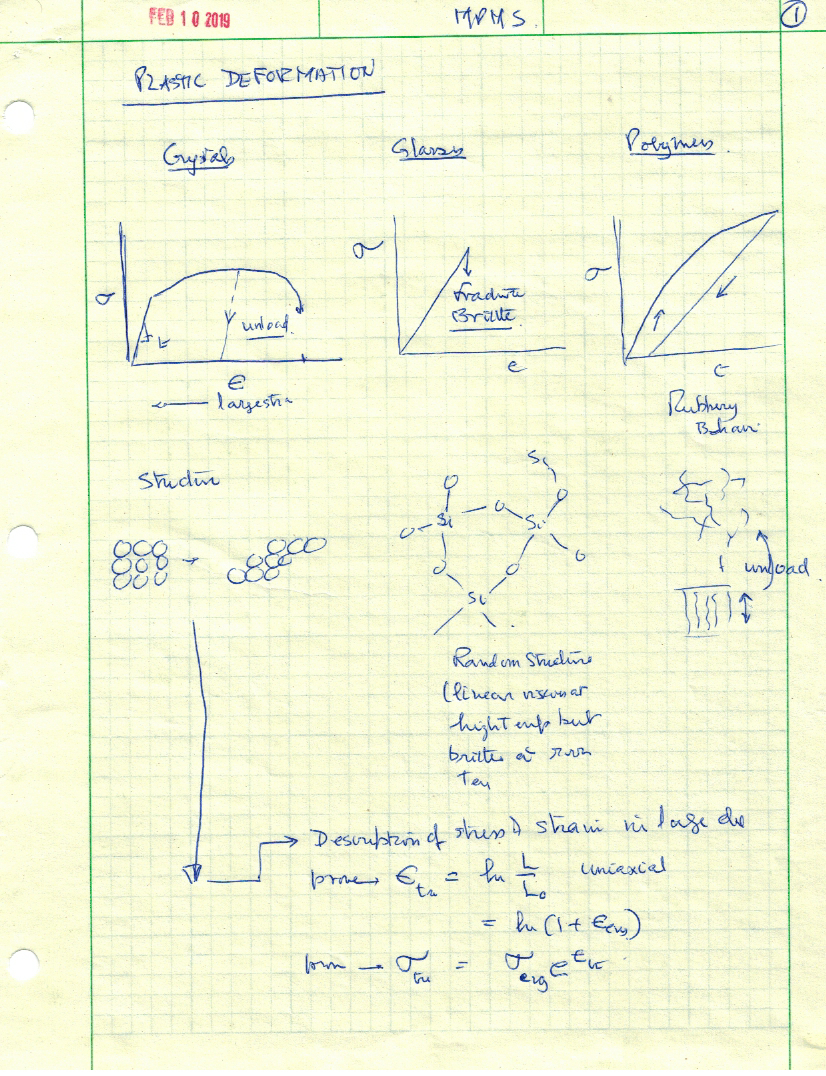 FEB 10 2019
MPMS.
1
PLASTIC DEFORMATION
Crystals
Glasses
Polymers.
σ
E
unload.
ϵ
σ
fracture
Brittle
ϵ
σ
ϵ
Rubbery
Behavi
Structure
Si
O
O
Si
O
Si
O
O
O
O
Si
unload
Random Structure
(linear viscous at
high temp but
brittle at room
Tem
Description of stress & strain in large de
prove → ϵtu = ln L/L₀ uniaxial
= ln (1 + ϵeng)
prove → σtu = σeng e^ϵtu